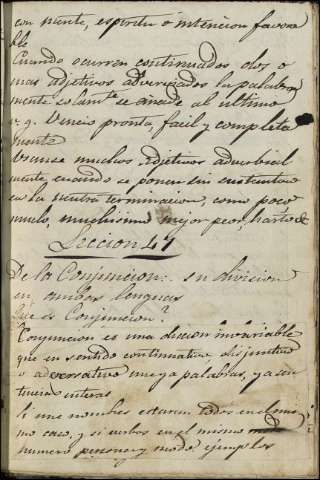 con mente, espiritu ó intencion favora
ble
Cuando ocurren continuados dos o
mas adjetivos adverviados la palabra
mente solamte se añade al ultimo
v. g. Vencio pronta, facil y completa
mente
Usanse muchos adjetivos adverbial
mente cuando se ponen sin sustantivo
en la neutra terminacion, como poco
mucho, muchisimo mejor peor, harto &
Leccion 47
De la Conjuncion: su division
en ambas lenguas
Que es Conjuncion?
Conjuncion es una diccion invariable
que en sentido continuativo disjuntivo
o adversativo une ya palabras, ya sen
tencias enteras
Si une nombres estaran todos en el mis
mo caso, y si verbos en el mismo
numero persona y modo ejemplos